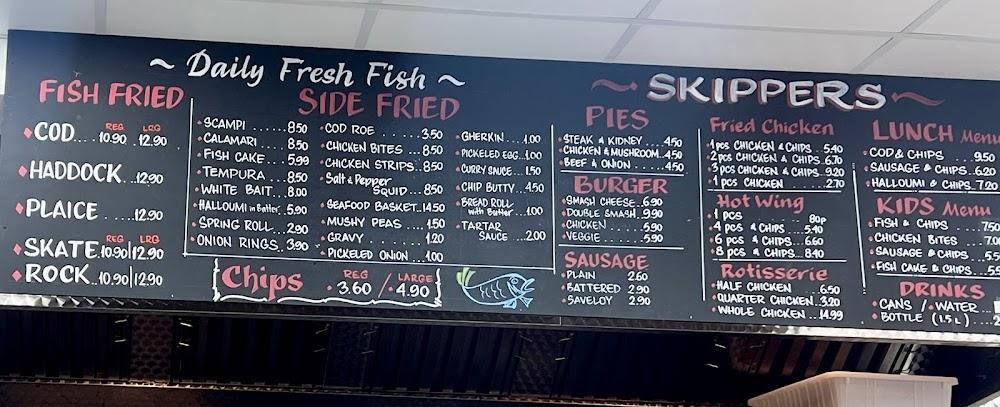 ~ Daily Fresh Fish ~
FISH FRIED
REG LRG
COD... 10.90 12.90
HADDOCK...12.90
PLAICE ....12.90
REG LRG
SKATE.10.90|12.90
ROCK..10.90|12.90
SIDE FRIED
SCAMPI ...... 8.50
CALAMARI ..... 8.50
FISH CAKE.... 5.99
TEMPURA .... 8.50
WHITE BAIT... 8.00
HALLOUMI in Batter. 5.90
SPRING ROLL... 2.90
ONION RINGS. 3.90
COD ROE ...... 3.50
CHICKEN BITES ... 8.50
CHICKEN STRIPS. 8.50
Salt & Pepper
SQUID...8.50
SEAFOOD BASKET..14.50
MUSHY PEAS ....1.50
GRAVY ........1.20
PICKELED ONION ..1.00
GHERKIN....1.00
PICKELED EGG..1.00
CURRY SAUCE...1.50
CHIP BUTTY...4.50
BREAD ROLL
with Butter..1.00
TARTAR
SAUCE ...2.00
Chips REG 3.60 / LARGE 4.90
~ SKIPPERS ~
PIES
STEAK & KIDNEY ....4.50
CHICKEN & MUSHROOM..4.50
BEEF & ONION .......4.50
BURGER
SMASH CHEESE..6.90
DOUBLE SMASH..9.90
CHICKEN ...... 5.90
VEGGIE ....... 5.90
SAUSAGE
PLAIN 2.60
BATTERED 2.90
SAVELOY 2.90
Fried Chicken
1 pcs CHICKEN & CHIPS .. 5.40
2 pcs CHICKEN & CHIPS.. 6.70
3 pcs CHICKEN & CHIPS.. 9.20
1 pcs CHICKEN .........2.70
Hot Wing
1 PCS ............ 80p
4 pcs & CHIPS .... 5.40
6 pcs & CHIPS.... 6.60
8 pcs & CHIPS.... 8.40
Rotisserie
HALF CHICKEN 6.50
QUARTER CHICKEN.. 3.20
WHOLE CHICKEN ..14.99
LUNCH Menu
COD & CHIPS ..... 9.50
SAUSAGE & CHIPS.. 6.20
HALLOUMI & CHIPS. 7.20
KIDS Menu
FISH & CHIPS .... 7.50
CHICKEN BITES ...7.0
SAUSAGE & CHIPS ..5.5
FISH CAKE & CHIPS..5.5
DRINKS
CANS / WATER ...
BOTTLE (1.5L) ...2